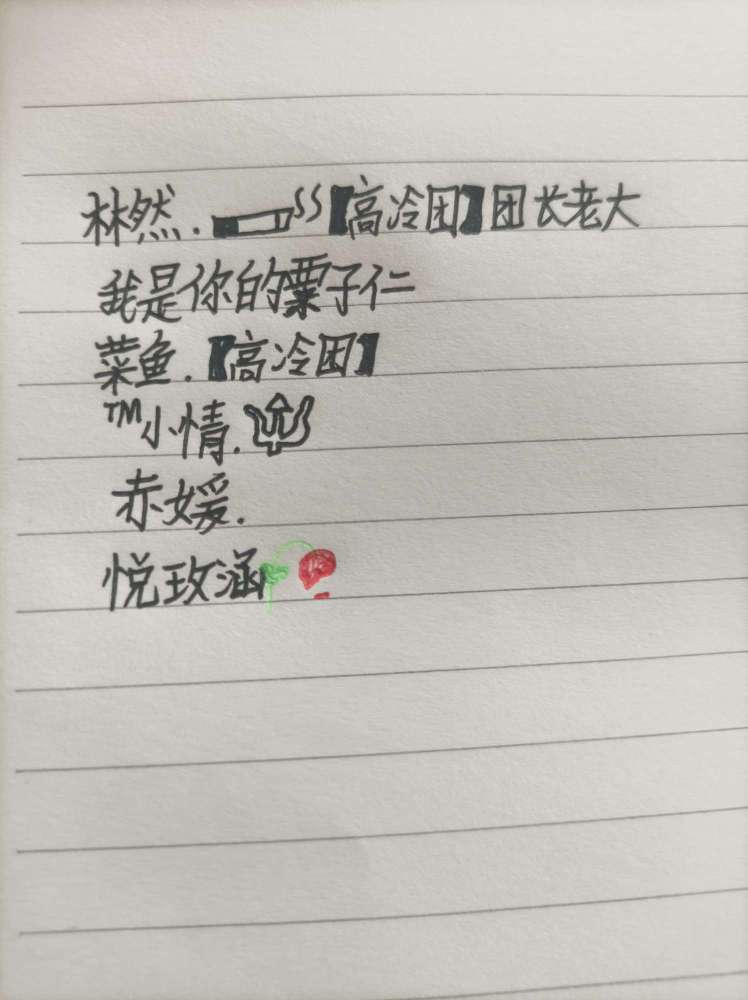 林然.🚬【高冷团】团长老大
我是你的粟子仁
菜鱼.【高冷团】
™小情.🔱
赤媛.
悦玫涵🥀